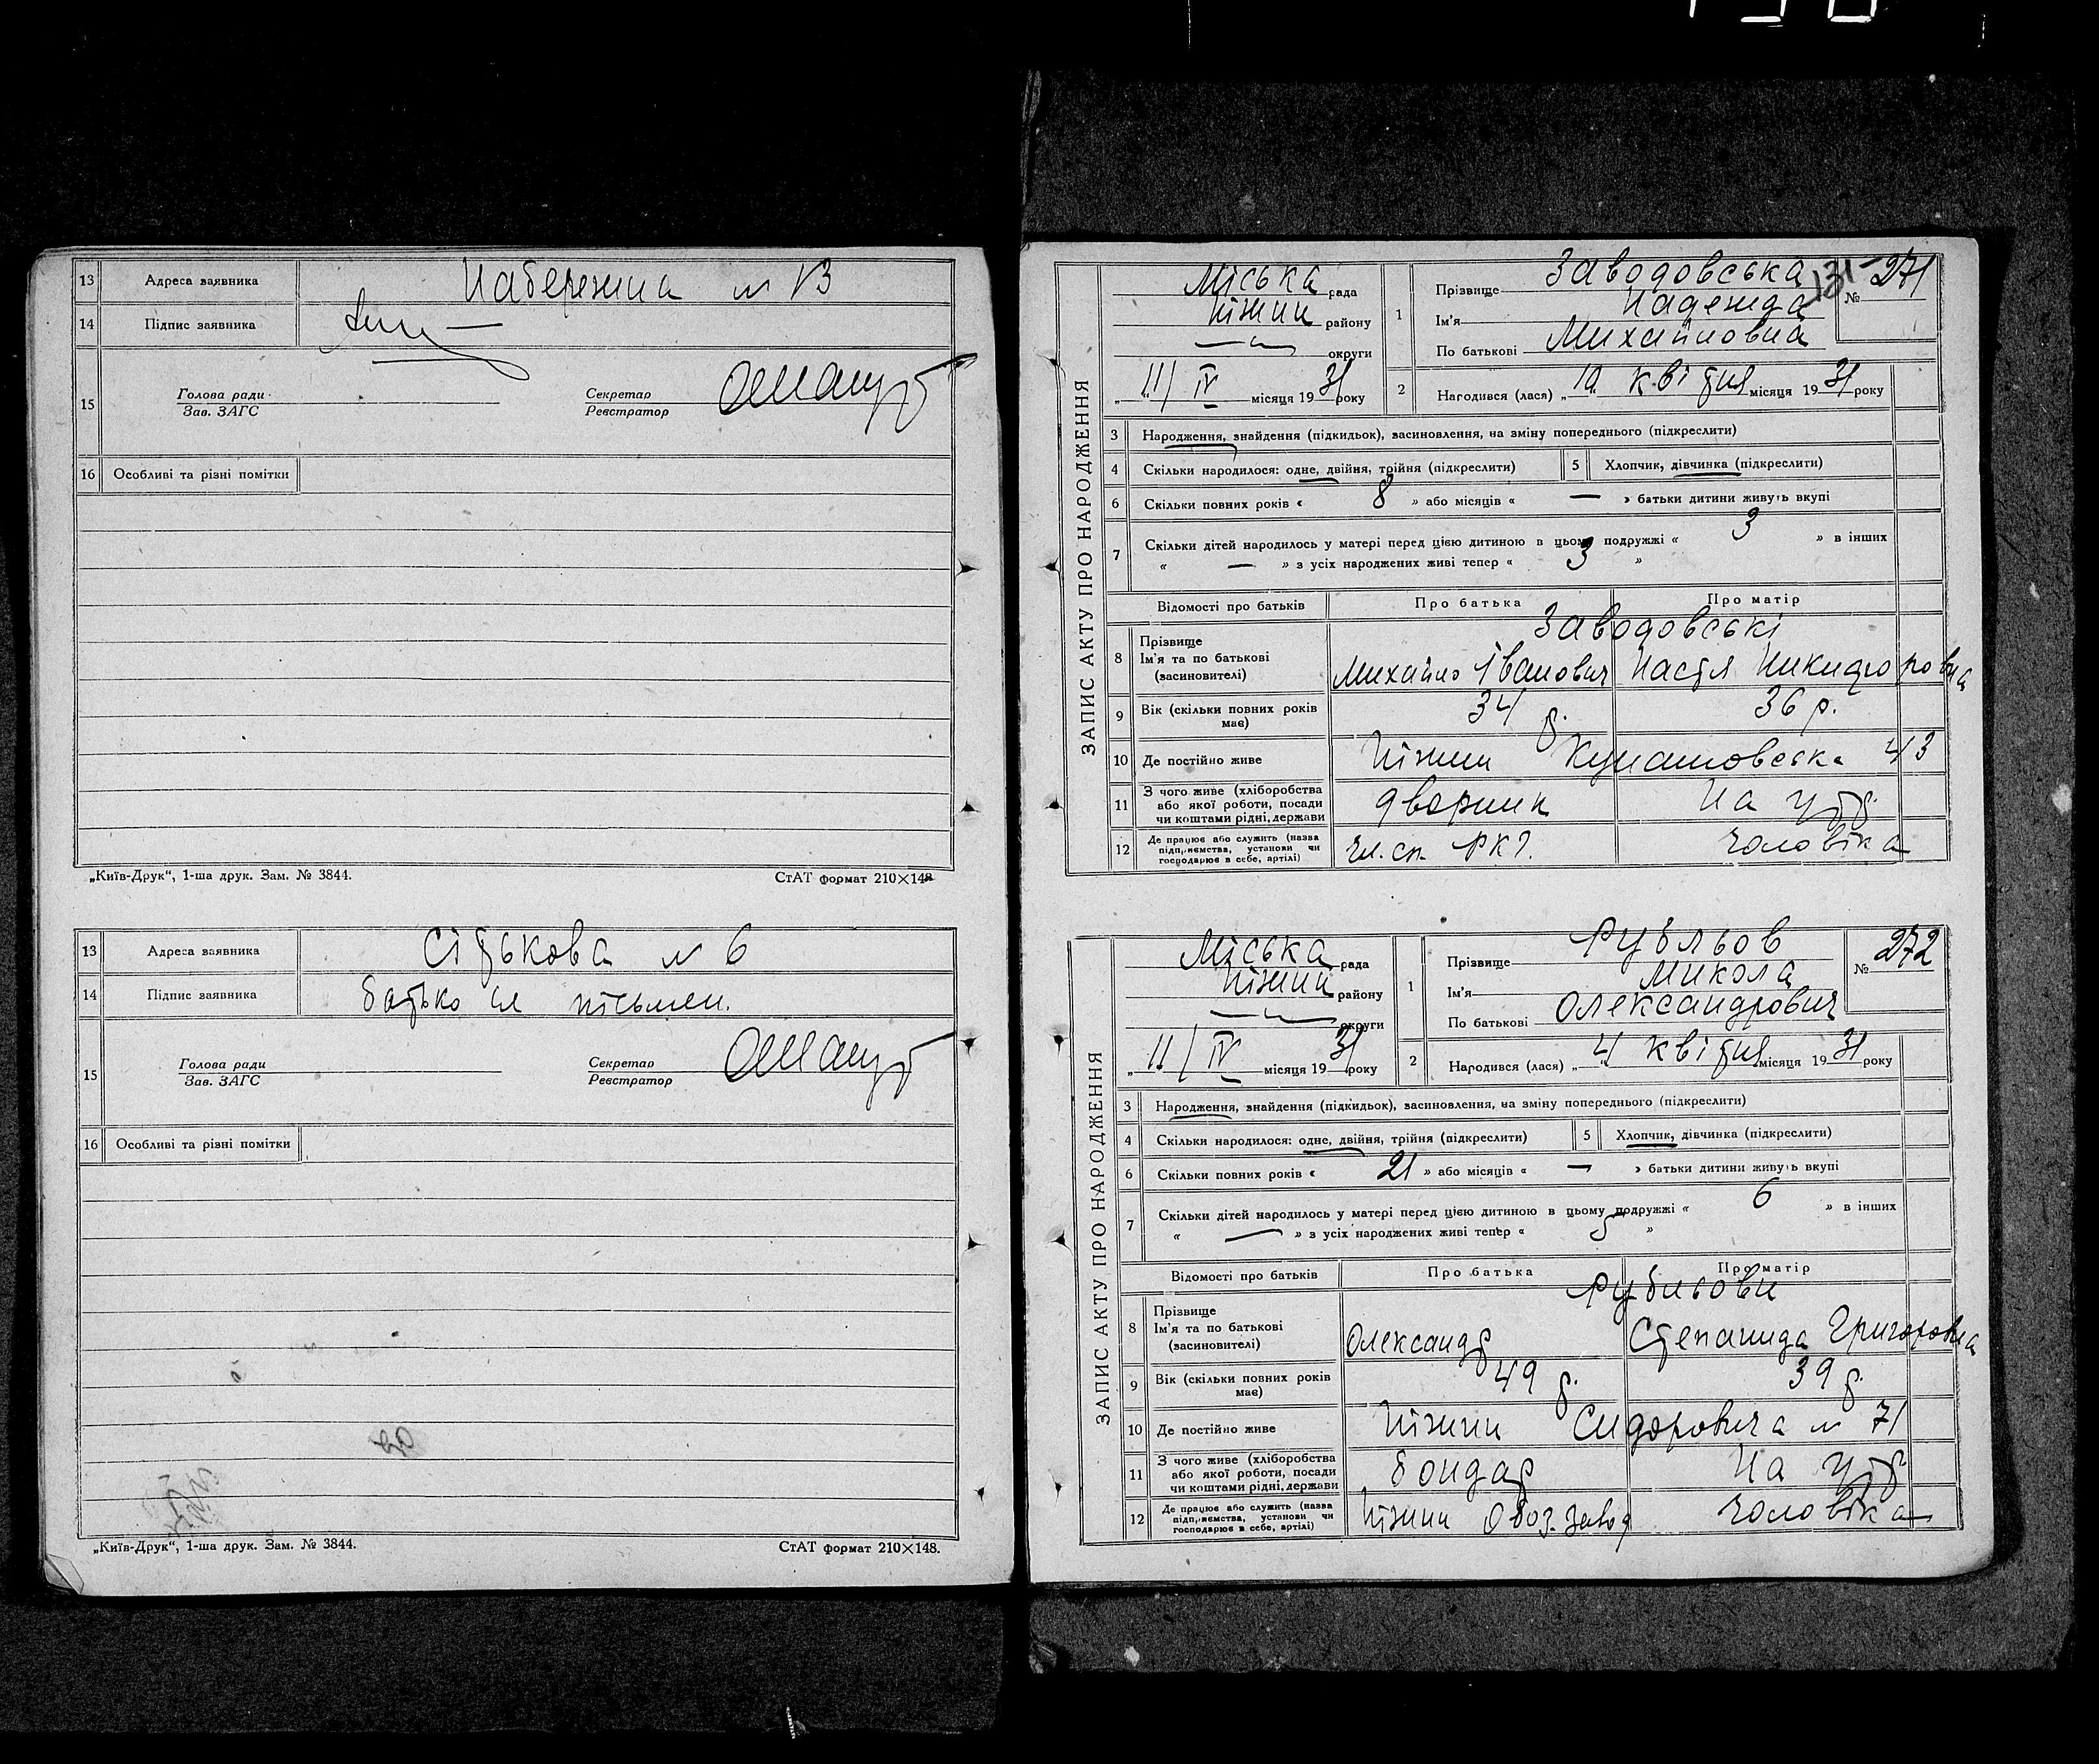 13 Адреса заявника Набережна № 13
14 Підпис заявника
15 Голова ради Зав. ЗАГС Секретар Реєстратор
16 Особливі та різні помітки
„Київ-Друк“, 1-ша друк. Зам. № 3844. СтАТ формат 210×148
13 Адреса заявника № 6
14 Підпис заявника батько не письмен.
15 Голова ради Зав. ЗАГС Секретар Реєстратор
16 Особливі та різні помітки
„Київ-Друк“, 1-ша друк. Зам. № 3844. СтАТ формат 210×148.
ЗАПИС АКТУ ПРО НАРОДЖЕННЯ
Міська рада
Ніжин району
округи
„11/ IV місяця 1931 року
1 Прізвище Заводовська
Ім'я Надежда
По батькові Михайловна
131- № 271
2 Народився (лася) „10 квітня місяця 1931 року
3 Народження, знайдення (підкидьок), засиновлення, на зміну попереднього (підкреслити)
4 Скільки народилося: одне, двійня, трійня (підкреслити) 5 Хлопчик, дівчинка (підкреслити)
6 Скільки повних років « 8 » або місяців « — » батьки дитини живуть вкупі
7 Скільки дітей народилось у матері перед цією дитиною в цьому подружжі « 3 » в інших
« — » з усіх народжених живі тепер « 3 »
Відомості про батьків Про батька Про матір
8 Прізвище Ім'я та по батькові (засиновителі) Заводовські
Михайло Іванович Настя Никифоровна
9 Вік (скільки повних років має) 34 р. 36 р.
10 Де постійно живе Ніжин Кунашовська 43
11 З чого живе (хліборобства або якої роботи, посади чи коштами рідні, держави дворник На утр.
12 Де працює або служить (назва підприємства, установи чи господарює в себе, артілі) Чл. сп. чоловіка
ЗАПИС АКТУ ПРО НАРОДЖЕННЯ
Міська рада
Ніжин району
округи
„11/ IV місяця 1931 року
1 Прізвище Рубльов
Ім'я Микола
По батькові Олександрович
№ 272
2 Народився (лася) „4 квітня місяця 1931 року
3 Народження, знайдення (підкидьок), засиновлення, на зміну попереднього (підкреслити)
4 Скільки народилося: одне, двійня, трійня (підкреслити) 5 Хлопчик, дівчинка (підкреслити)
6 Скільки повних років « 21 » або місяців « — » батьки дитини живуть вкупі
7 Скільки дітей народилось у матері перед цією дитиною в цьому подружжі « 6 » в інших
« — » з усіх народжених живі тепер « 5 »
Відомості про батьків Про батька Про матір
8 Прізвище Ім'я та по батькові (засиновителі) Рубльови
Олександр Степанида Григоровна
9 Вік (скільки повних років має) 49 р. 39 р.
10 Де постійно живе Ніжин Сидоровича № 71
11 З чого живе (хліборобства або якої роботи, посади чи коштами рідні, держави бондар На утр
12 Де працює або служить (назва підприємства, установи чи господарює в себе, артілі) Ніжин Обоз. завод чоловіка